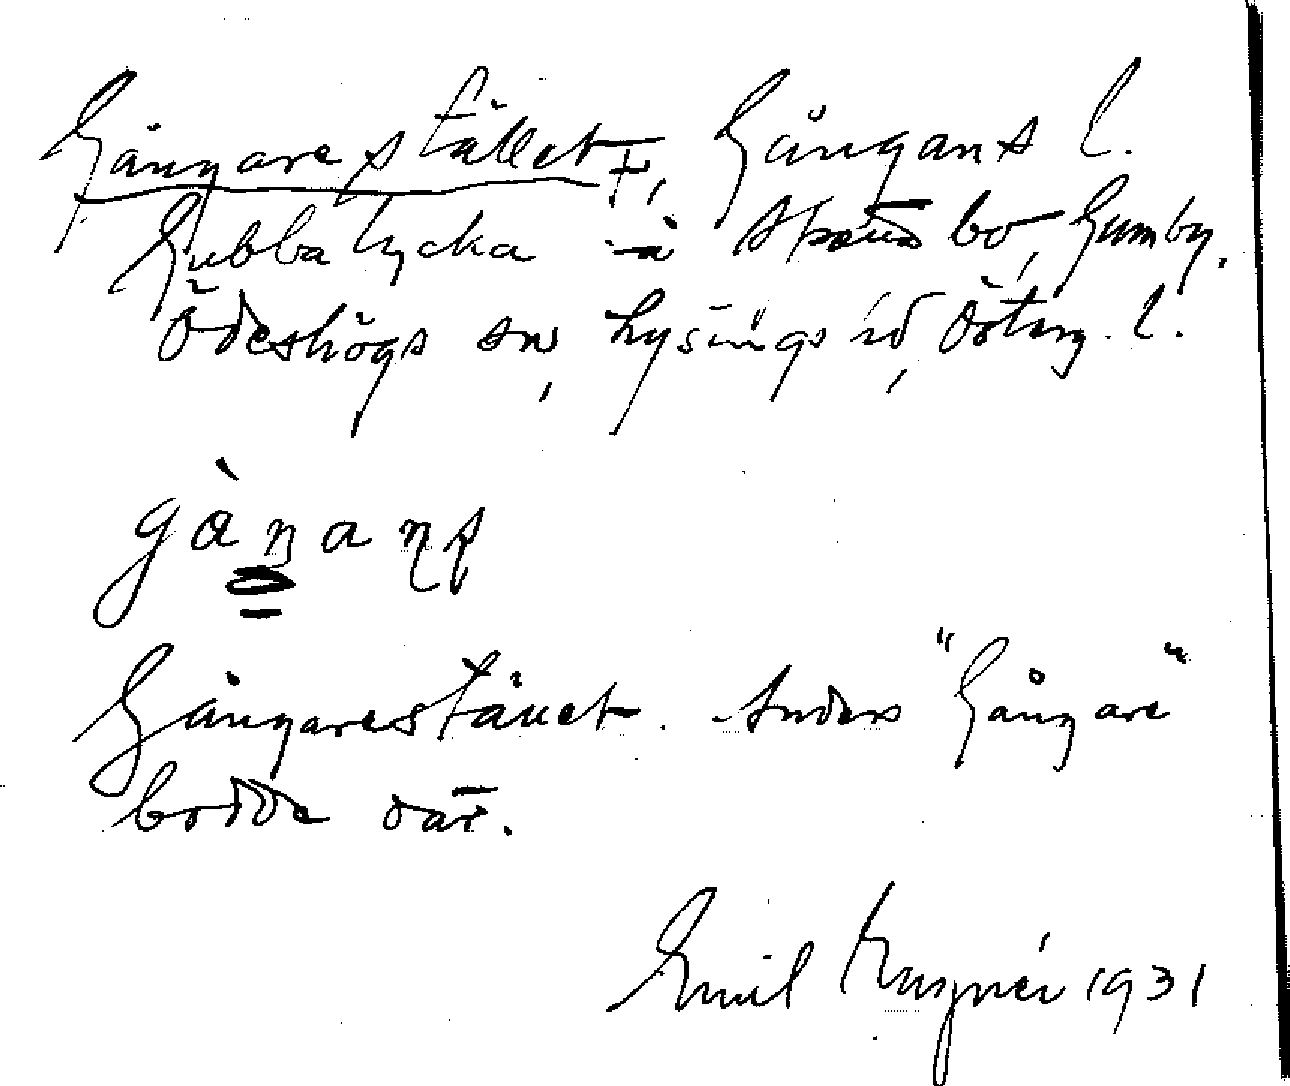 Gångareställets †, Gångans l.
Gubbatycka å bo, Gumby.
Ödeshögs sn, Lysings hd, Österg. l.
gàŋaṇs
Gångarestället. Anders "Gångare"
bodde där.
Emil 1931